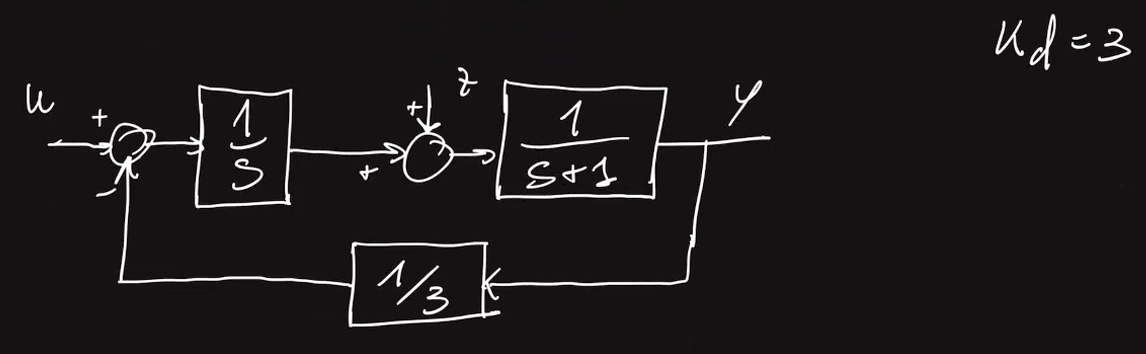 K_d = 3
u + 1/s + z + 1/(s+1) y
-
1/3